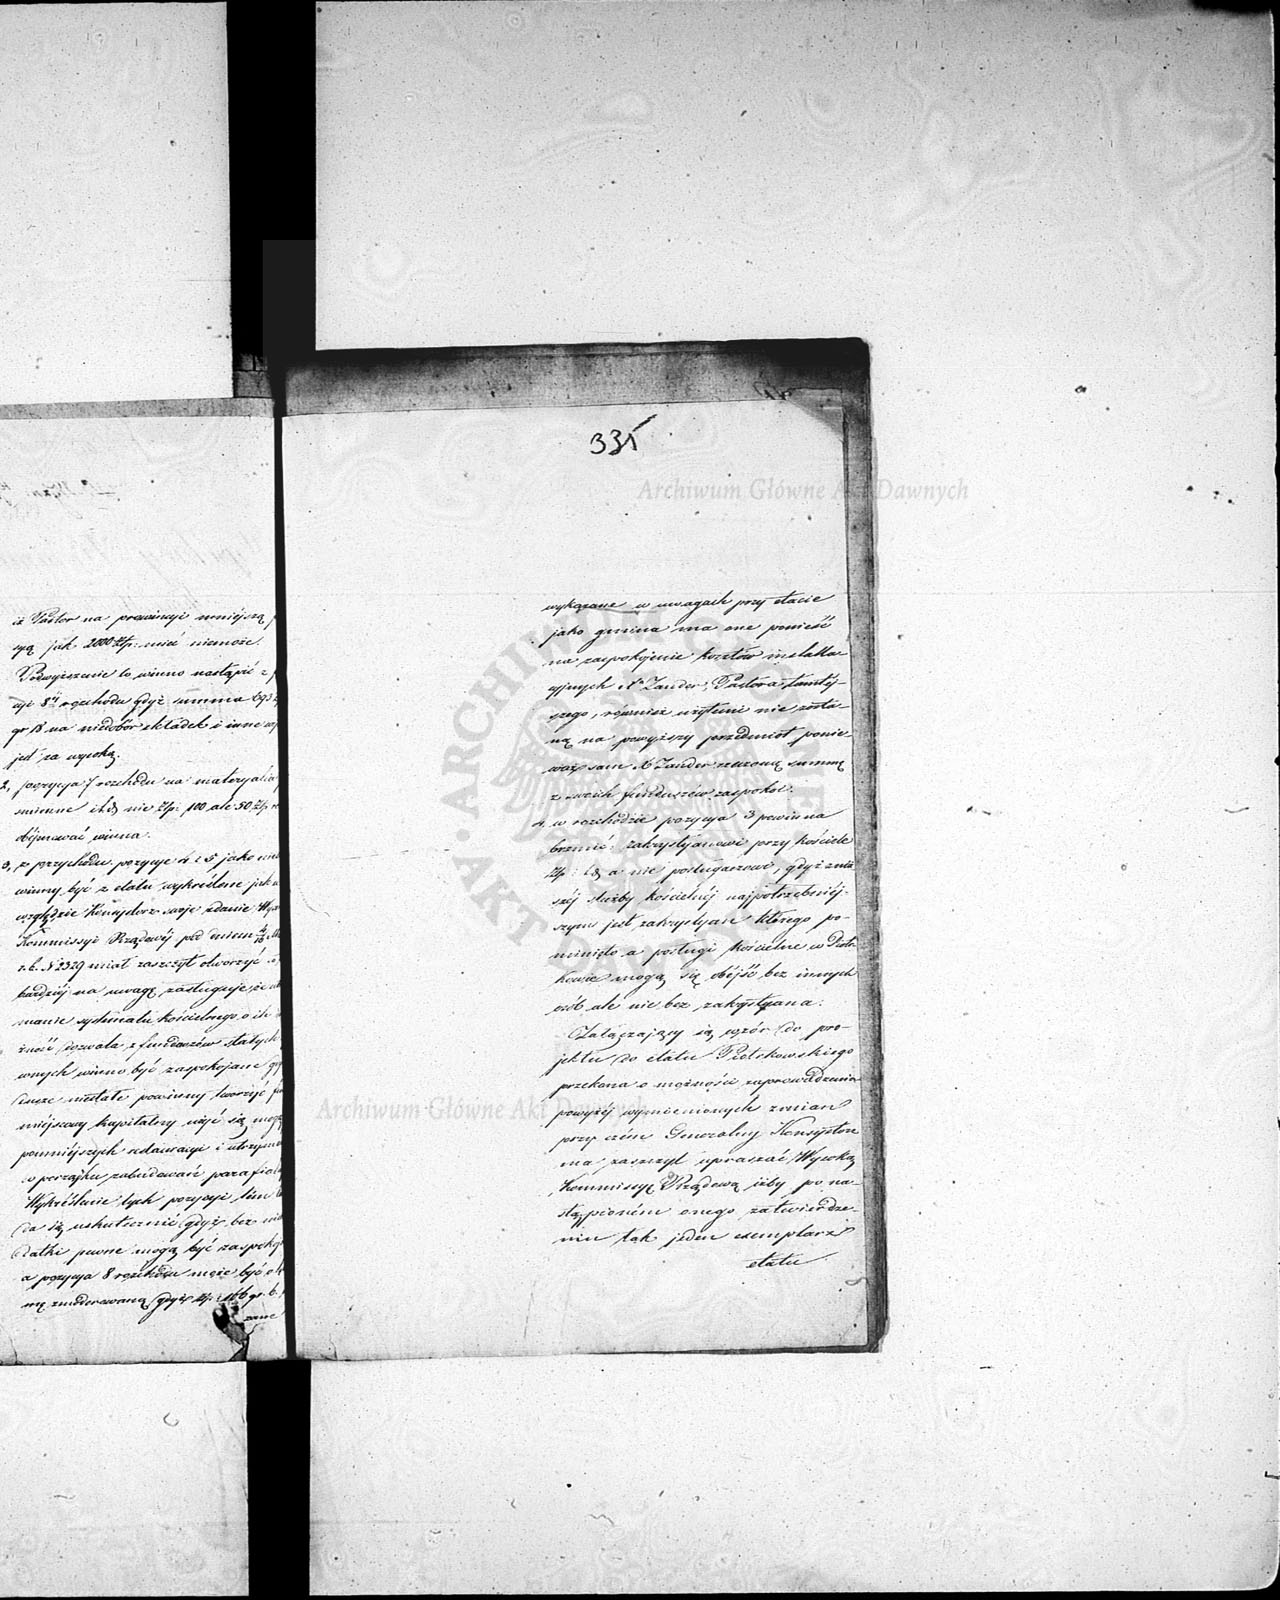 iż Pastor na prowincyi mniejszą
syą jak 2000 złp: mieć niemoże.
Podwyższenie to winno nastąpić z
cyi 8ej rozchodu gdyż summa
gr 18 na niedobór składek i inne
jest za wysoką.
2, pozycya 7 rozchodu na materyały
śmienne itd nie Złp: 100 ale 50 Złp
obejmować winna.
3, z przychodu pozycye 4 i 5 jako
winny być z etatu wykreślone jak
względzie Konsystorz swoje zdanie
Kommissyi Rządowej pod dniem
r. b. N 2329 miał zaszczyt otworzyć
bardziej na uwagę zasługuje, że
manie systematu kościelnego o ile
żność dozwala, z funduszów stałych
wnych winno być zaspokojane
dusze niestałe powinny tworzyć
miejscowy kapitalny użyć się mogą
pomniejszych restauracyi i utrzyma
w porządku zabudowań parafial
Wykreślenie tych pozycyi tem
da się uskutecznić gdyż bez nich
datki pewne mogą być zaspoko
a pozycya 8 rozchodu może być
mę zmoderowaną gdyż złp: 166 gr. 6.
zane
335
wykazane w uwagach przy etacie
jako gmina ma one ponieść
na zaspokojenie kosztów installa-
cyjnych Xa Zander, Pastora tamtej-
szego, również użytemi nie zosta-
ną na powyższy przedmiot ponie-
waż sam X Zander rzeczoną summę
z swoich funduszów zaspokoi.
4. w rozchodzie pozycya 3 powinna
brzmieć: zakrystyanowi przy kościele
Złp: a nie posługaczowi, gdyż
szej służby kościelnej najpotrzebniej-
szym jest zakrystyan którego po-
minięto a posługi kościelne w Piotr-
kowie mogą się obejść bez innych
osób ale nie bez zakrystyana.
Załączający się wzór do pro-
jektu do etatu Piotrkowskiego
przekona o możności zaprowadzenia
powyżej wymienionych zmian
przy czem Generalny Konsystorz
ma zaszczyt upraszać Wysoką
Kommissyę Rządową iżby po na-
stąpionem onego zatwierdze-
niu tak jeden exemplarz
etatu
Archiwum Główne Akt Dawnych
Archiwum Główne Akt Dawnych
ARCHIWUM GŁÓWNE AKT DAWNYCH